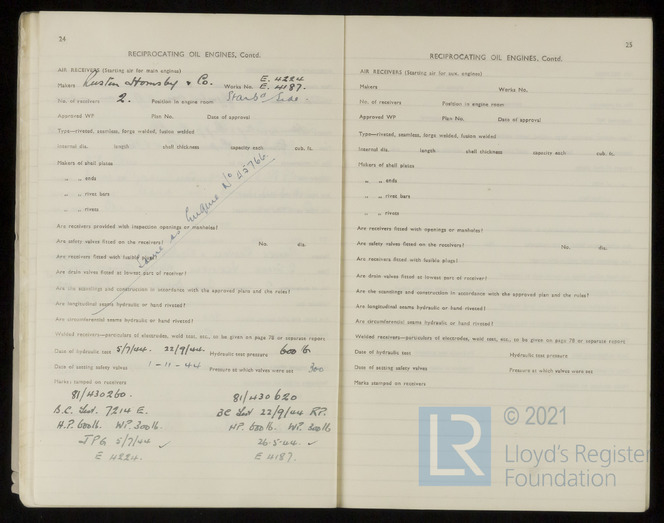 24
RECIPROCATING OIL ENGINES, Contd.
AIR RECEIVERS (Starting air for main engines)
Makers Ruston Hornsby & Co. Works No. E. 4224 E. 4187.
No. of receivers 2. Position in engine room Starbd Side.
Approved WP Plan No. Date of approval
Type—riveted, seamless, forge welded, fusion welded
Internal dia. length shell thickness capacity each cub. ft.
Makers of shell plates
„ „ ends
„ „ rivet bars
„ „ rivets
Same as Engine No 115766
Are receivers provided with inspection openings or manholes?
Are safety valves fitted on the receivers? No. dia.
Are receivers fitted with fusible plugs?
Are drain valves fitted at lowest part of receiver?
Are the standings and construction in accordance with the approved plan and the rules?
Are longitudinal seams hydraulic or hand riveted?
Are circumferential seams hydraulic or hand riveted?
Welded receivers—particulars of electrodes, weld test, etc., to be given on page 78 or separate report
Date of hydraulic test 5/7/44. 22/9/44. Hydraulic test pressure 600 lb
Date of setting safety valves 1-11-44 Pressure at which valves were set 300
Marks stamped on receivers
81/430260. 81/430620
B.C. Test. 7214 E. BC Test 22/9/44 RP.
H.P. 600 lb. WP. 300 lb. HP. 600 lb. WP. 300 lb
JPG 5/7/44 ✓ 26.5.44. ✓
E 4224. E 4187.
25
RECIPROCATING OIL ENGINES, Contd.
AIR RECEIVERS (Starting air for aux. engines)
Makers Works No.
No. of receivers Position in engine room
Approved WP Plan No. Date of approval
Type—riveted, seamless, forge welded, fusion welded
Internal dia. length shell thickness capacity each cub. ft.
Makers of shell plates
„ „ ends
„ „ rivet bars
„ „ rivets
Are receivers fitted with inspection openings or manholes?
Are safety valves fitted on the receivers? No. dia.
Are receivers fitted with fusible plugs?
Are drain valves fitted at lowest part of receiver?
Are the standings and construction in accordance with the approved plan and the rules?
Are longitudinal seams hydraulic or hand riveted?
Are circumferential seams hydraulic or hand riveted?
Welded receivers—particulars of electrodes, weld test, etc., to be given on page 78 or separate report
Date of hydraulic test Hydraulic test pressure
Date of setting safety valves Pressure at which valves were set
Marks stamped on receivers
LR
© 2021
Lloyd's Register
Foundation